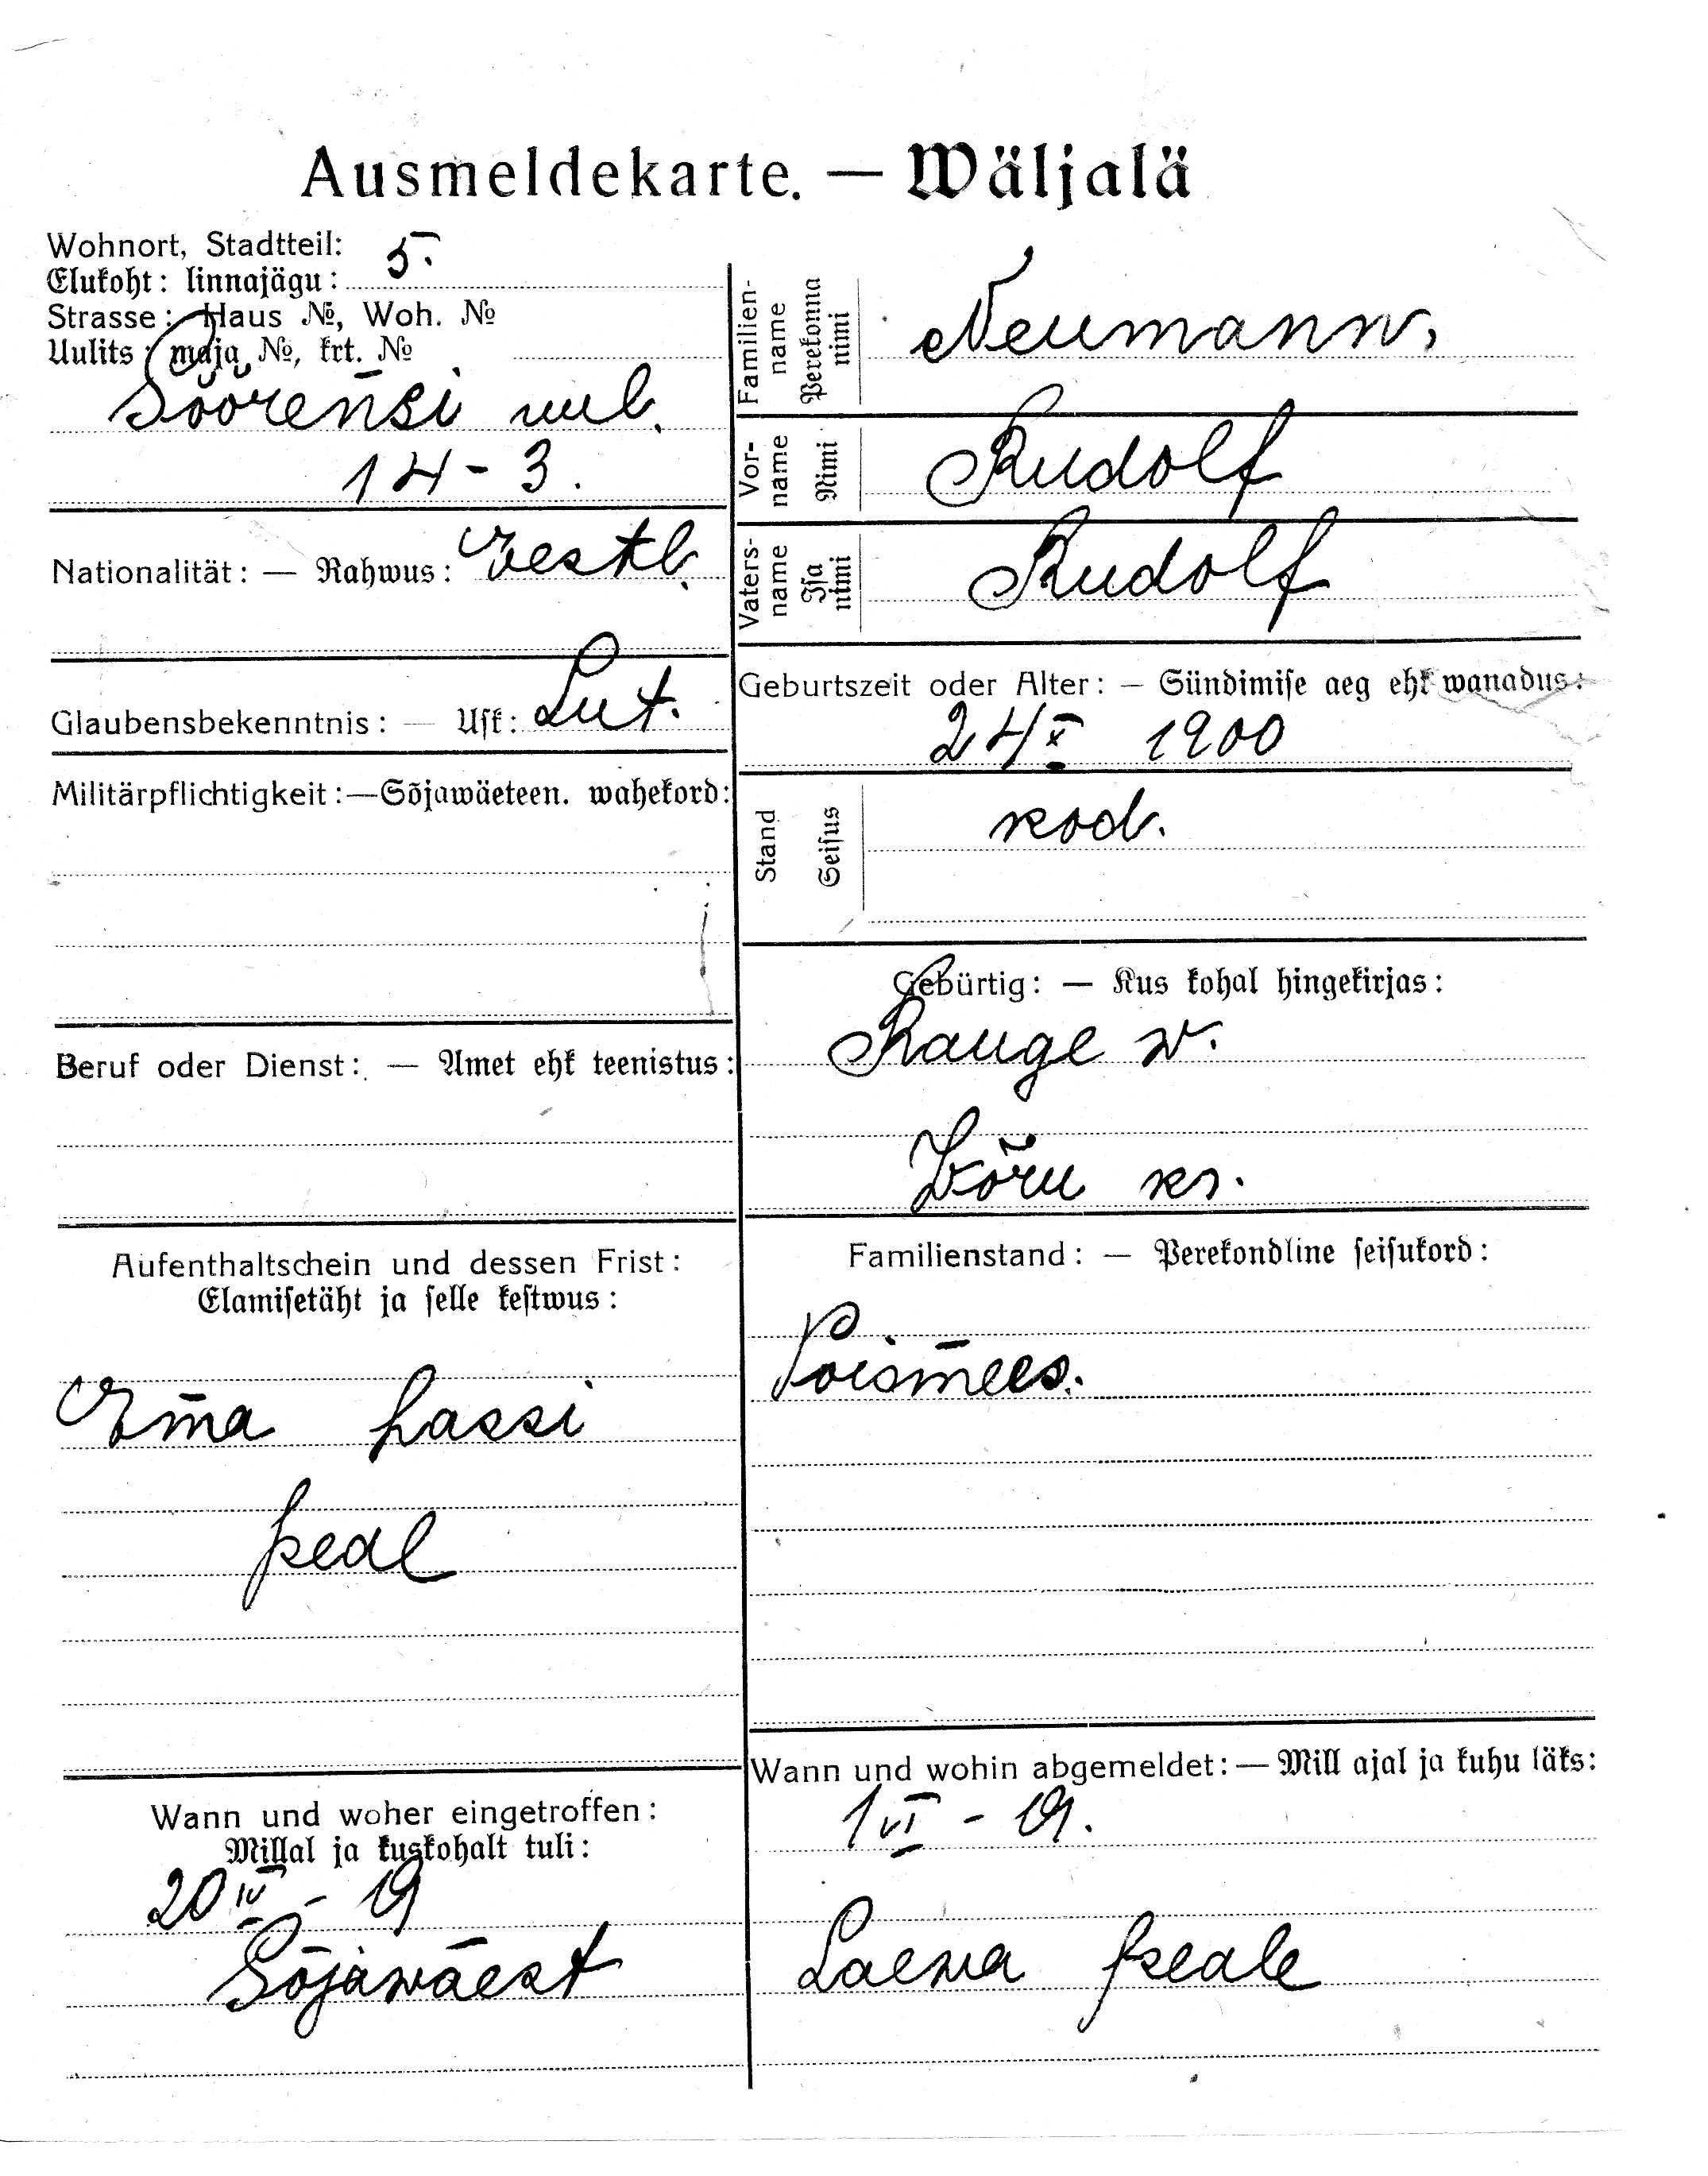 Ausmeldekarte. — Wäljalä
Wohnort, Stadtteil:
Elukoht: linnajägu: 5.
Strasse: Haus №, Woh. №
Uulits: maja №, krt. №
Söörensi uul.
14 - 3.
Nationalität: — Rahwus: Eestl.
Glaubensbekenntnis: — Usk: Lut.
Militärpflichtigkeit: — Sõjawäeteen. wahekord:
Beruf oder Dienst: — Amet ehk teenistus:
Aufenthaltschein und dessen Frist:
Elamisetäht ja selle kestwus:
Ema passi
peal
Wann und woher eingetroffen:
Millal ja kuskohalt tuli:
20 IV - 19
Sõjawäest
Familien-name Perekonna nimi Neumann,
Vor-name Nimi Rudolf
Vaters-name Isa nimi Rudolf
Geburtszeit oder Alter: — Sündimise aeg ehk wanadus:
24 X 1900
Stand Seisus kod.
Gebürtig: — Kus kohal hingekirjas:
Rauge w.
Wõru kr.
Familienstand: — Perekondline seisukord:
Poismees.
Wann und wohin abgemeldet: — Mill ajal ja kuhu läks:
1 VI - 19.
Laewa peale